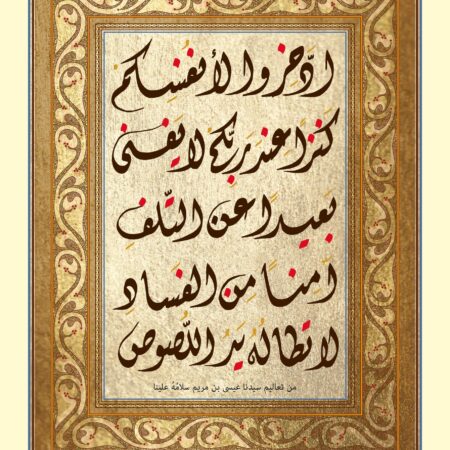 ادّخروا لأنفُسِكُم
كَنزًا عندَ ربِّكُم لا يَفنى
بَعيدًا عَنِ التَّلَفِ
آمنًا مِنَ الفَسادِ
لا تطالُهُ يَدُ اللُّصوصِ
من تعاليم سيدنا عيسى بن مريم سلامُهُ علينا